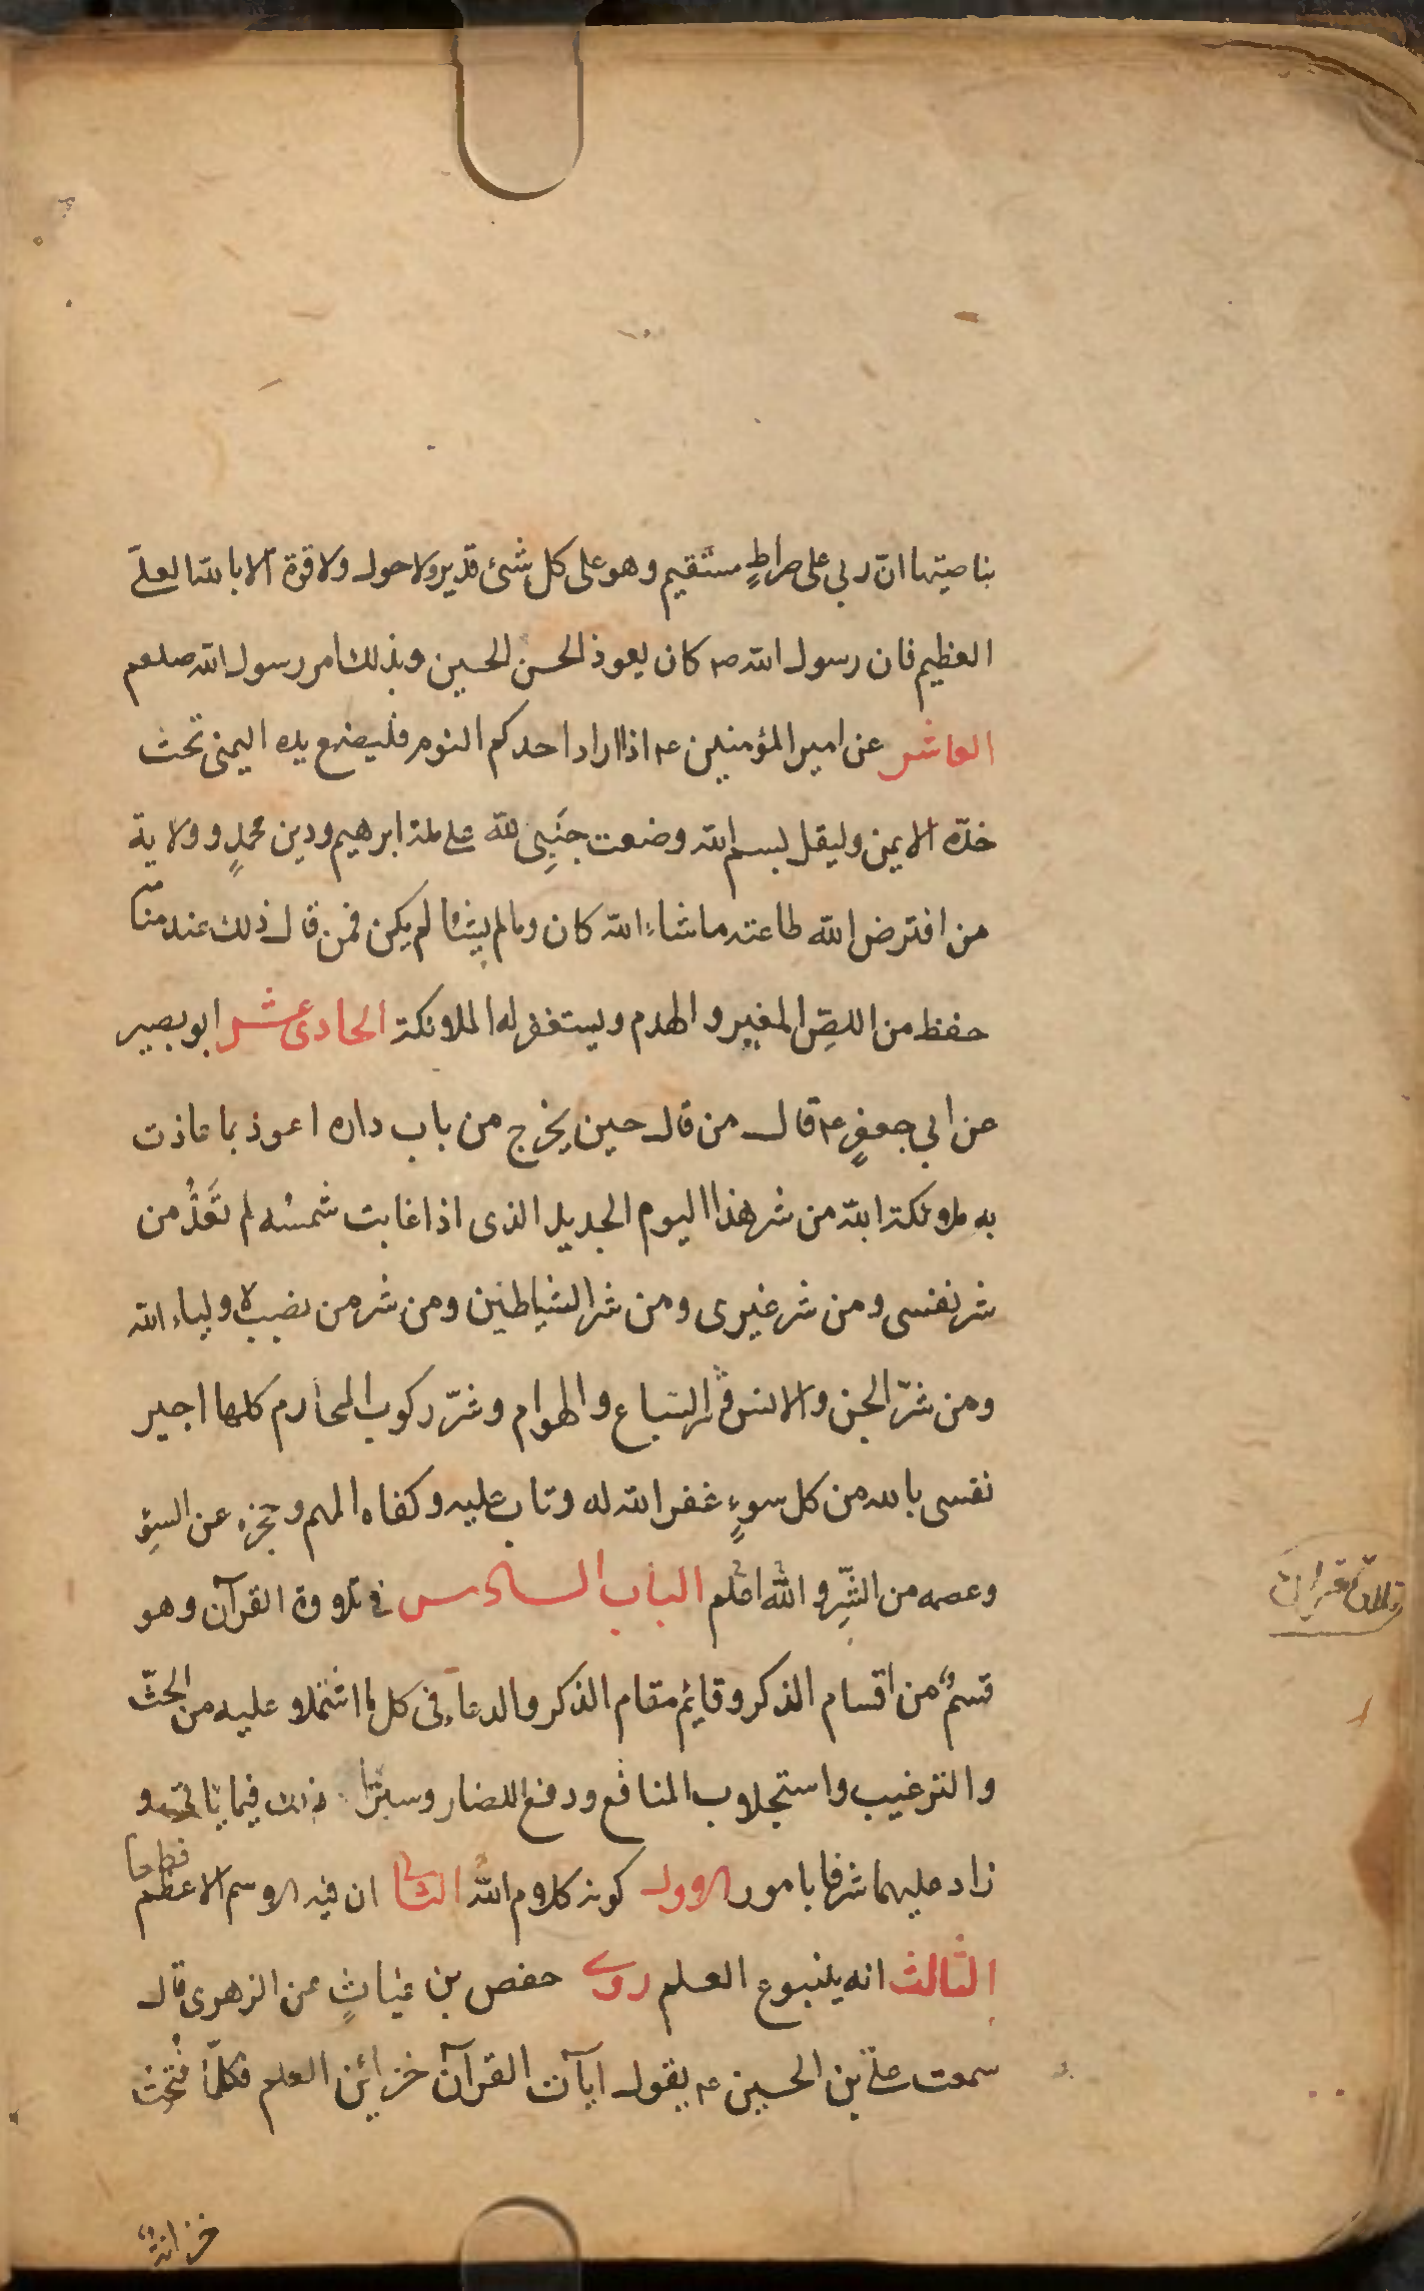 بناصيتها انّ ربي على صراطٍ مستقيم وهو على كل شئ قدير ولا حول ولا قوة الا بالله العليّ
العظيم فان رسول الله ص كان يعوذ الحسن الحسين وبذلك امر رسول الله صلعم
العاشر عن امير المؤمنين ع اذا اراد احدكم النوم فليضع يده اليمنى تحت
خدّه الايمن وليقل بسم الله وضعت جنَبِى لله على ملة ابرهيم ودين محمدٍ وولاية
من افترض الله طاعته ما شاء الله كان وما لم يشا لم يكن فمن قال ذلك عند منامه
حفظ من اللصِّ المغير والهدم ويستغفر له الملائكة الحادى عشر ابو بصير
عن ابي جعفرٍ ع قال من قال حين يخرج من باب داره اعوذ بما عاذت
به ملائكة الله من شر هذا اليوم الجديد الذى اذا غابت شمسُه لم تَعُدْ من
شر نفسى ومن شر غيرى ومن شر الشياطين ومن شر من نصب لاولياء الله
ومن شرّ الجن والانس وشر السباع والهوام وشرّ ركوب المحارم كلها اجير
نفسى بالله من كل سوءٍ غفر الله له وتاب عليه وكفاه المهم وحجزه عن السوِء
وعصمه من الشّرِ والله اعلم الباب السادس فى تلاوة القرآن وهو
قسمٌ من اقسام الذكر وقايم مقام الذكر والدعاء فى كل ما اشتملا عليه من الحثّ
والترغيب واستجلاب المنافع ودفع المضار وسترا ذلك فيما ياتى و
زاد عليهما شرفا بامور الاول كونه كلام الله الثانى ان فيه الاسم الاعظم قطعا
الثالث انه ينبوع العلم روى حفص بن غياثٍ عن الزهرى قال
سمعت علىّ بن الحسين ع يقول ايآت القرآن خزائن العلم فكلّما فُتحت
خزانةٌ